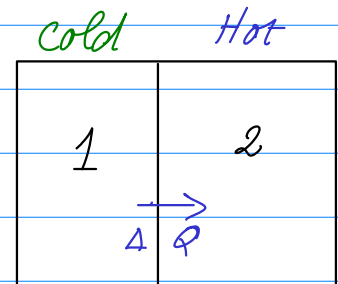 Cold Hot
1 2
Δ Q